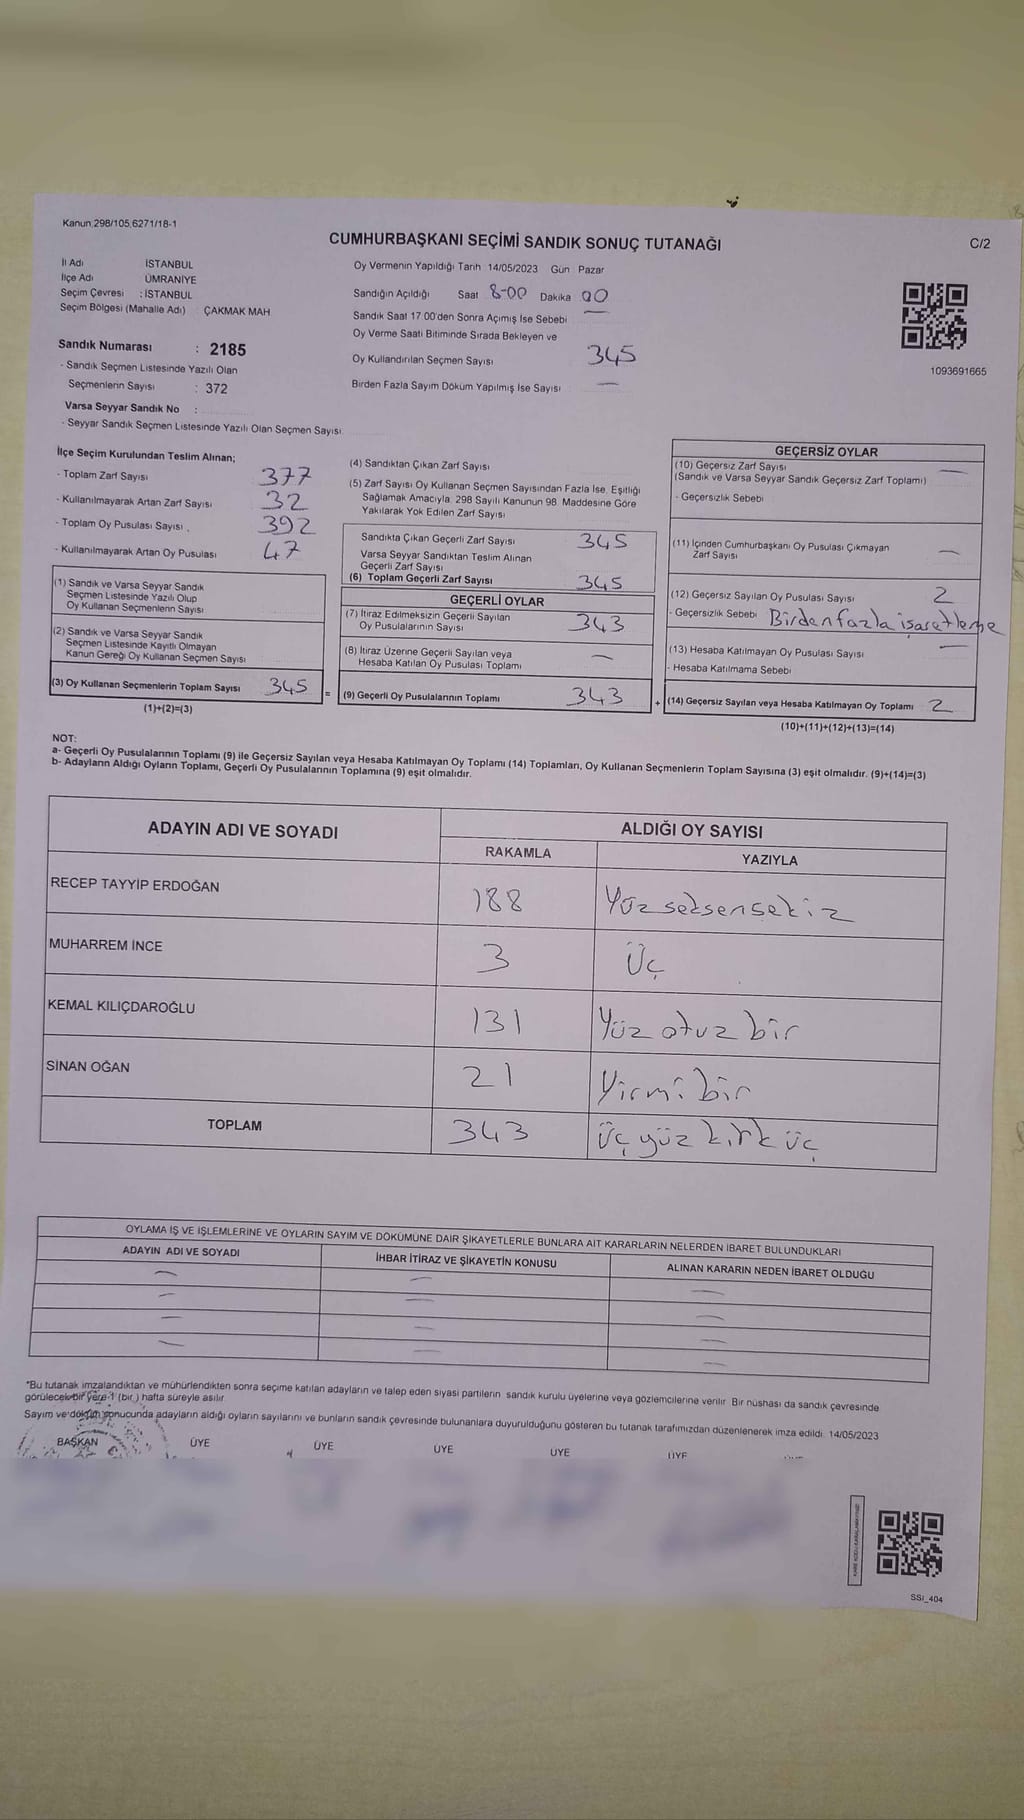 Kanun 298/105,6271/18-1
CUMHURBAŞKANI SEÇİMİ SANDIK SONUÇ TUTANAĞI
C/2
İl Adı İSTANBUL
İlçe Adı ÜMRANİYE
Seçim Çevresi : İSTANBUL
Seçim Bölgesi (Mahalle Adı) ÇAKMAK MAH
Sandık Numarası : 2185
- Sandık Seçmen Listesinde Yazılı Olan
Seçmenlerin Sayısı : 372
Varsa Seyyar Sandık No :
- Seyyar Sandık Seçmen Listesinde Yazılı Olan Seçmen Sayısı
Oy Vermenin Yapıldığı Tarih 14/05/2023 Gün Pazar
Sandığın Açıldığı Saat 8-00 Dakika 00
Sandık Saat 17 00'den Sonra Açımış İse Sebebi —
Oy Verme Saati Bitiminde Sırada Bekleyen ve
Oy Kullandırılan Seçmen Sayısı 345
Birden Fazla Sayım Döküm Yapılmış İse Sayısı —
1093691665
İlçe Seçim Kurulundan Teslim Alınan;
- Toplam Zarf Sayısı 377
- Kullanılmayarak Artan Zarf Sayısı 32
- Toplam Oy Pusulası Sayısı 392
- Kullanılmayarak Artan Oy Pusulası 47
(1) Sandık ve Varsa Seyyar Sandık
Seçmen Listesinde Yazılı Olup
Oy Kullanan Seçmenlerin Sayısı
(2) Sandık ve Varsa Seyyar Sandık
Seçmen Listesinde Kayıtlı Olmayan
Kanun Gereği Oy Kullanan Seçmen Sayısı
(3) Oy Kullanan Seçmenlerin Toplam Sayısı 345
(1)+(2)=(3)
=
(4) Sandıktan Çıkan Zarf Sayısı
(5) Zarf Sayısı Oy Kullanan Seçmen Sayısından Fazla İse, Eşitliği
Sağlamak Amacıyla 298 Sayılı Kanunun 98. Maddesine Göre
Yakılarak Yok Edilen Zarf Sayısı
Sandıkta Çıkan Geçerli Zarf Sayısı 345
Varsa Seyyar Sandıktan Teslim Alınan
Geçerli Zarf Sayısı
(6) Toplam Geçerli Zarf Sayısı 345
GEÇERLİ OYLAR
(7) İtiraz Edilmeksizin Geçerli Sayılan
Oy Pusulalarının Sayısı 343
(8) İtiraz Üzerine Geçerli Sayılan veya
Hesaba Katılan Oy Pusulası Toplamı —
(9) Geçerli Oy Pusulalarının Toplamı 343
+
GEÇERSİZ OYLAR
(10) Geçersiz Zarf Sayısı —
(Sandık ve Varsa Seyyar Sandık Geçersiz Zarf Toplamı)
- Geçersizlik Sebebi
(11) İçinden Cumhurbaşkanı Oy Pusulası Çıkmayan
Zarf Sayısı —
(12) Geçersiz Sayılan Oy Pusulası Sayısı 2
- Geçersizlik Sebebi Birden fazla işaretleme
(13) Hesaba Katılmayan Oy Pusulası Sayısı —
- Hesaba Katılmama Sebebi
(14) Geçersiz Sayılan veya Hesaba Katılmayan Oy Toplamı 2
(10)+(11)+(12)+(13)=(14)
NOT:
a- Geçerli Oy Pusulalarının Toplamı (9) ile Geçersiz Sayılan veya Hesaba Katılmayan Oy Toplamı (14) Toplamları, Oy Kullanan Seçmenlerin Toplam Sayısına (3) eşit olmalıdır. (9)+(14)=(3)
b- Adayların Aldığı Oyların Toplamı, Geçerli Oy Pusulalarının Toplamına (9) eşit olmalıdır.
ADAYIN ADI VE SOYADI ALDIĞI OY SAYISI
RAKAMLA YAZIYLA
RECEP TAYYİP ERDOĞAN 188 Yüz seksen sekiz
MUHARREM İNCE 3 Üç
KEMAL KILIÇDAROĞLU 131 Yüz otuz bir
SİNAN OĞAN 21 Yirmi bir
TOPLAM 343 Üç yüz kırk üç
OYLAMA İŞ VE İŞLEMLERİNE VE OYLARIN SAYIM VE DÖKÜMÜNE DAİR ŞİKAYETLERLE BUNLARA AİT KARARLARIN NELERDEN İBARET BULUNDUKLARI
ADAYIN ADI VE SOYADI İHBAR İTİRAZ VE ŞİKAYETİN KONUSU ALINAN KARARIN NEDEN İBARET OLDUĞU
— — —
— — —
— — —
— — —
*Bu tutanak imzalandıktan ve mühürlendikten sonra seçime katılan adayların ve talep eden siyasi partilerin sandık kurulu üyelerine veya gözlemcilerine verilir. Bir nüshası da sandık çevresinde
görülecek bir yere 1 (bir) hafta süreyle asılır.
Sayım ve döküm sonucunda adayların aldığı oyların sayılarını ve bunların sandık çevresinde bulunanlara duyurulduğunu gösteren bu tutanak tarafımızdan düzenlenerek imza edildi. 14/05/2023
BAŞKAN ÜYE ÜYE ÜYE ÜYE ÜYE
SSI_404